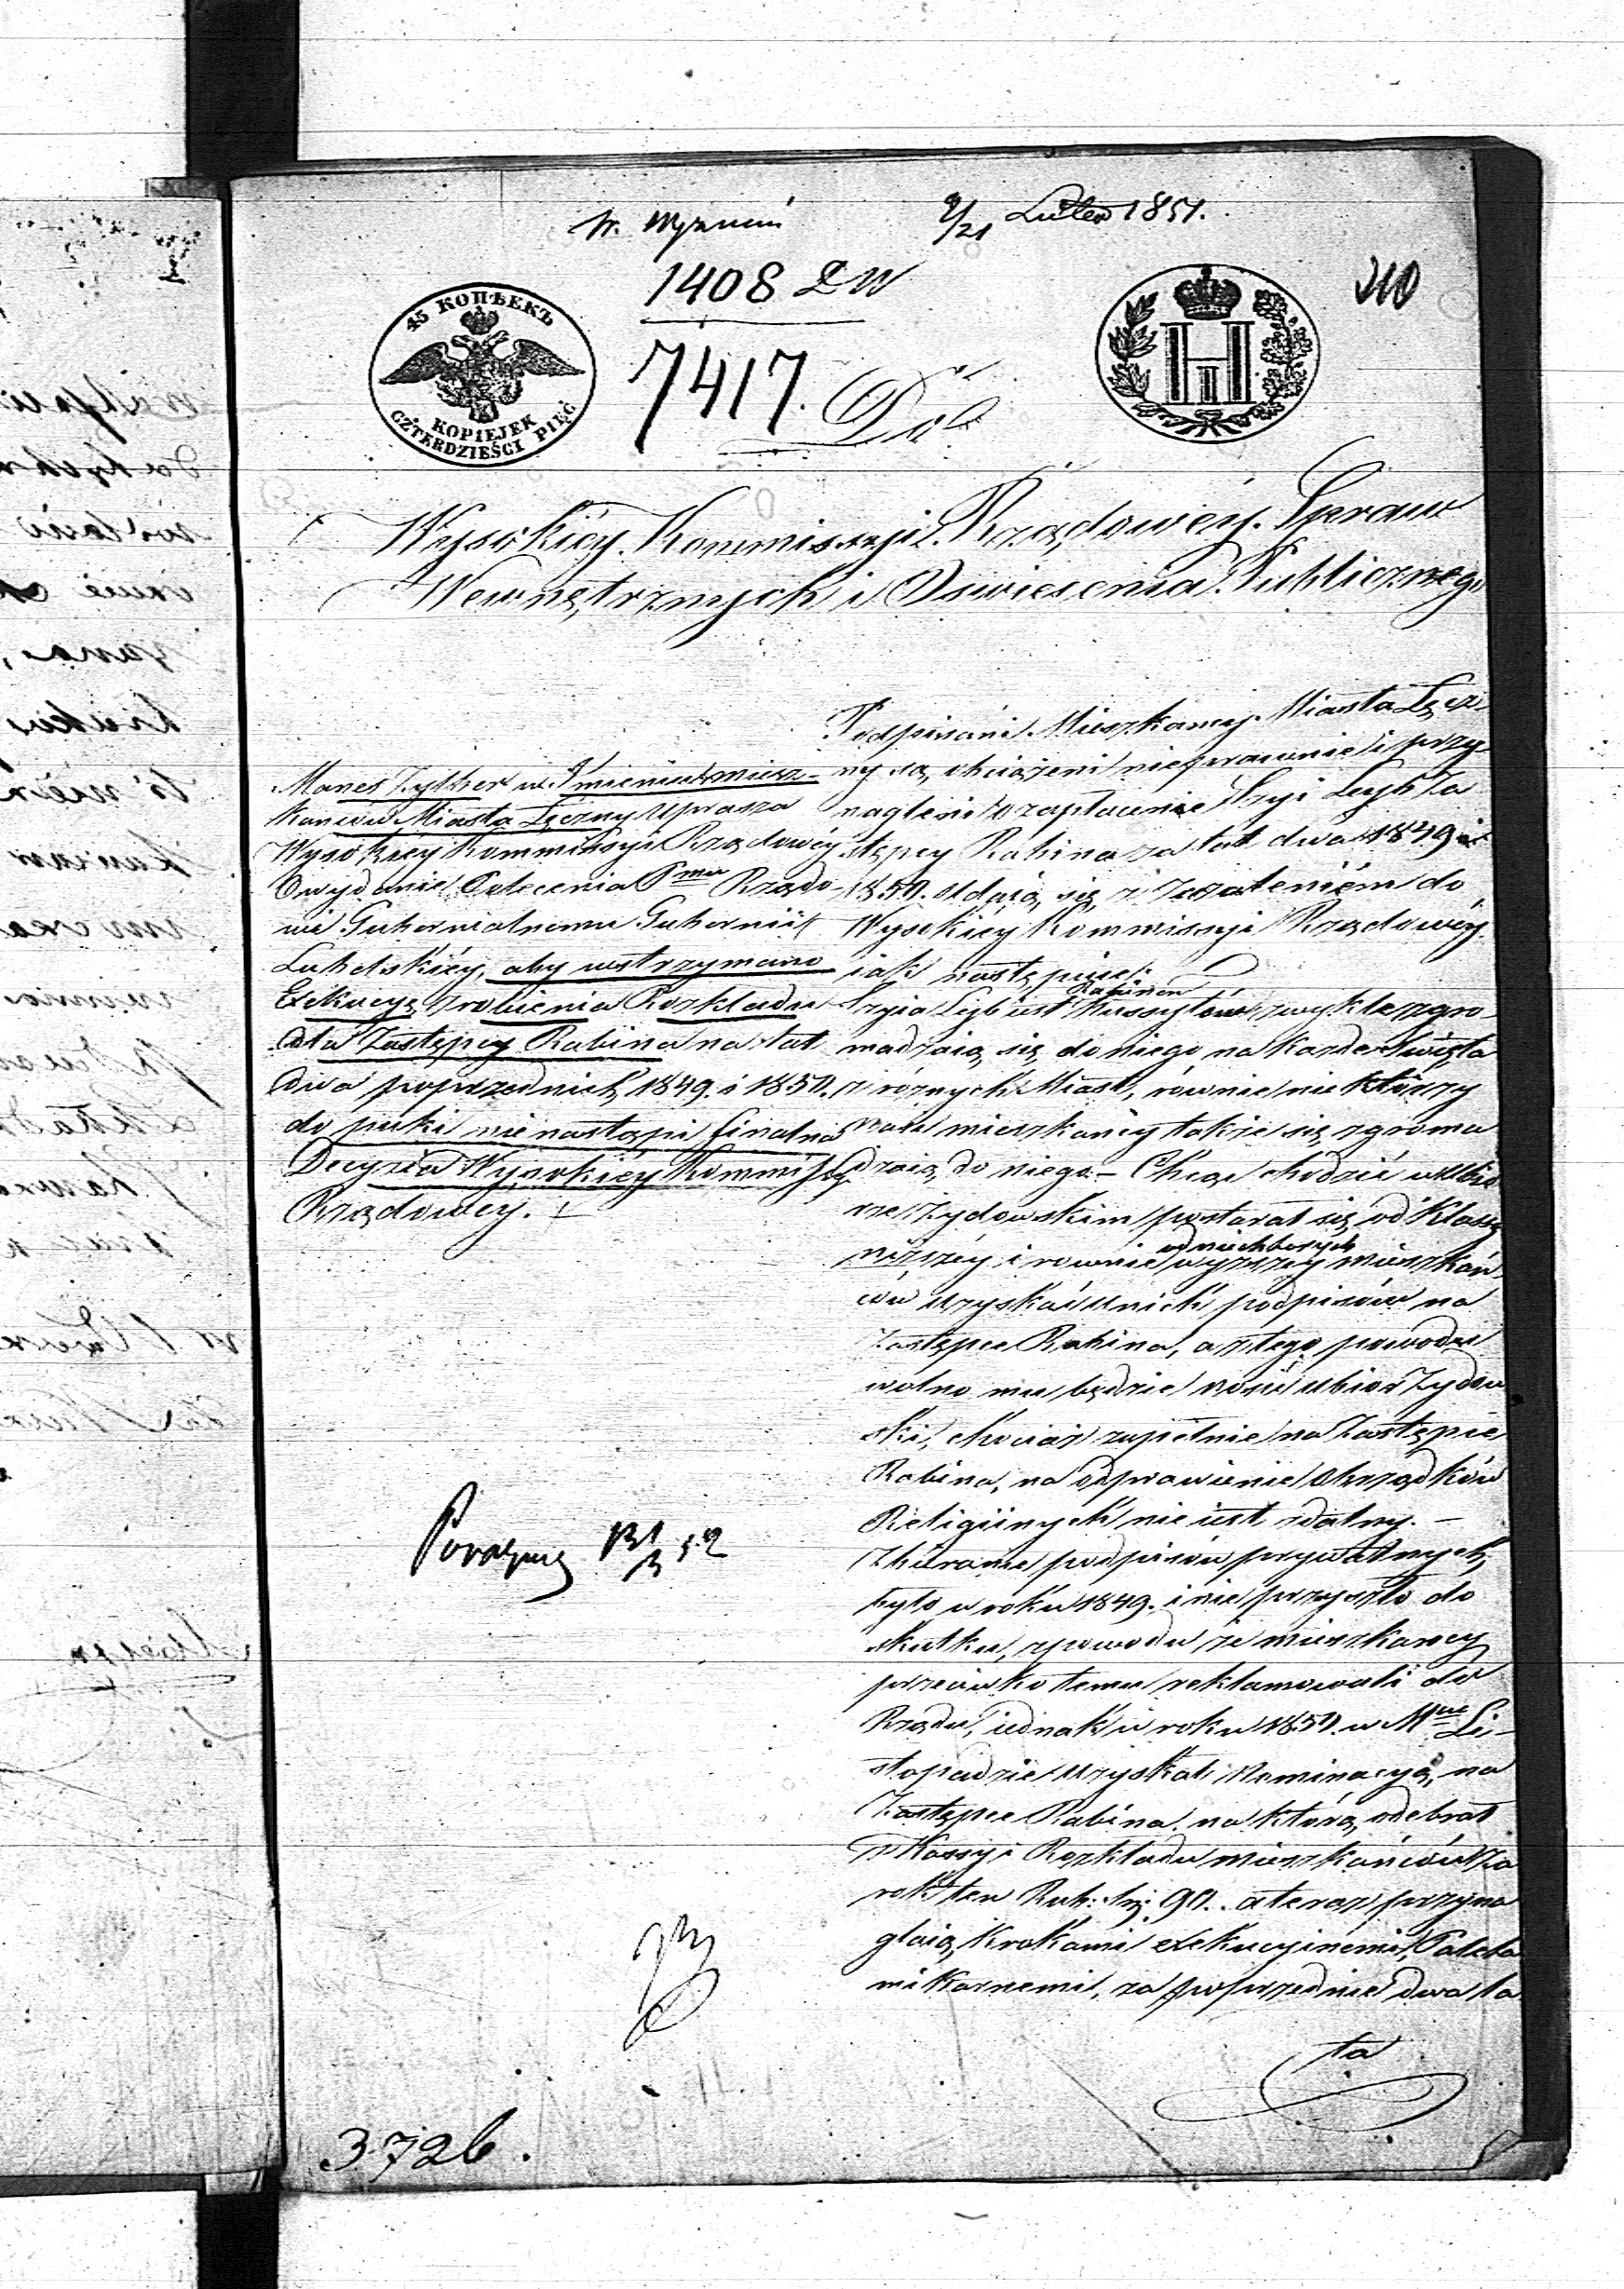 W. Wyznań
9/21 Lutego 1851.
1408 DW
210
45 КОПѢЕКЪ
KOPIEJEK
CZTERDZIEŚCI PIĘĆ
7417.
Do
Wysokiéy Kommissyi Rządowéy Spraw
Wewnętrznych i Oswiecenia Publicznego
Manes Zylber w Imieniu miesz-
kańców Miasta Łęczny Uprasza
Wysokiey Kommissyi Rządowéy
O wydanie Polecenia Rządo-
wi Gubernialnemu Gubernii
Lubelskiéy, aby wstrzymano
Exekucyę zrobienia Rozkładu
dla Zastępcy Rabina na lat
dwa poprzednich 1849. i 1850.
do puki nie nastąpi finalna
Decyzia Wysokiey Kommissyi
Rządowey.
Podpisani Mieszkancy Miasta Łęcz-
ny są obciążeni nieprawnie i przy
nagleni o zapłacenie Szyi Leyb Za
stępcy Rabina za lat dwa 1849 i
1850. udaią się z Zażaleniem do
Wysokiéy Kommissyi Rządowéy
iak następuie:
Szyia Leyb iest Rabinem Hussytów, zwykle zgro-
madzaią się do niego na każde Swięta
z różnych Miast, rownie nie którzy
nasi mieszkańcy także się zgroma
dzaią do niego. – Chcąc chodzić w Ubio
rze Żydowskim postarał się od Klassy
niższéy i rownie od niechtorych wyższey mieszkań
ców uzyskać u nich podpisów na
Zastępce Rabina, a z tego powodu
wolno mu będzie nosić ubior Żydow
ski, chociaż zupełnie na Zastępcie
Rabina, na odprawienie Obrządków
Religiinych nie iest zdatny. –
Zbieranie podpisów prywatnych,
było w roku 1849. i nie przyszło do
skutku, z powodu że mieszkancy
przeciwko temu reklamowali do
Rządu, iednak w roku 1850. w Mcu Li-
stopadzie uzyskał Nominacyą, na
Zastępce Rabina na którą odebrał
z Kassy i Rozkładu mieszkańców za
rok ten Rub: Sr: 90. a teraz przyna
glaią Krokami exekucyinemi, Paleta
mi Karnemi, za poprzednie dwa la
ta
3726.